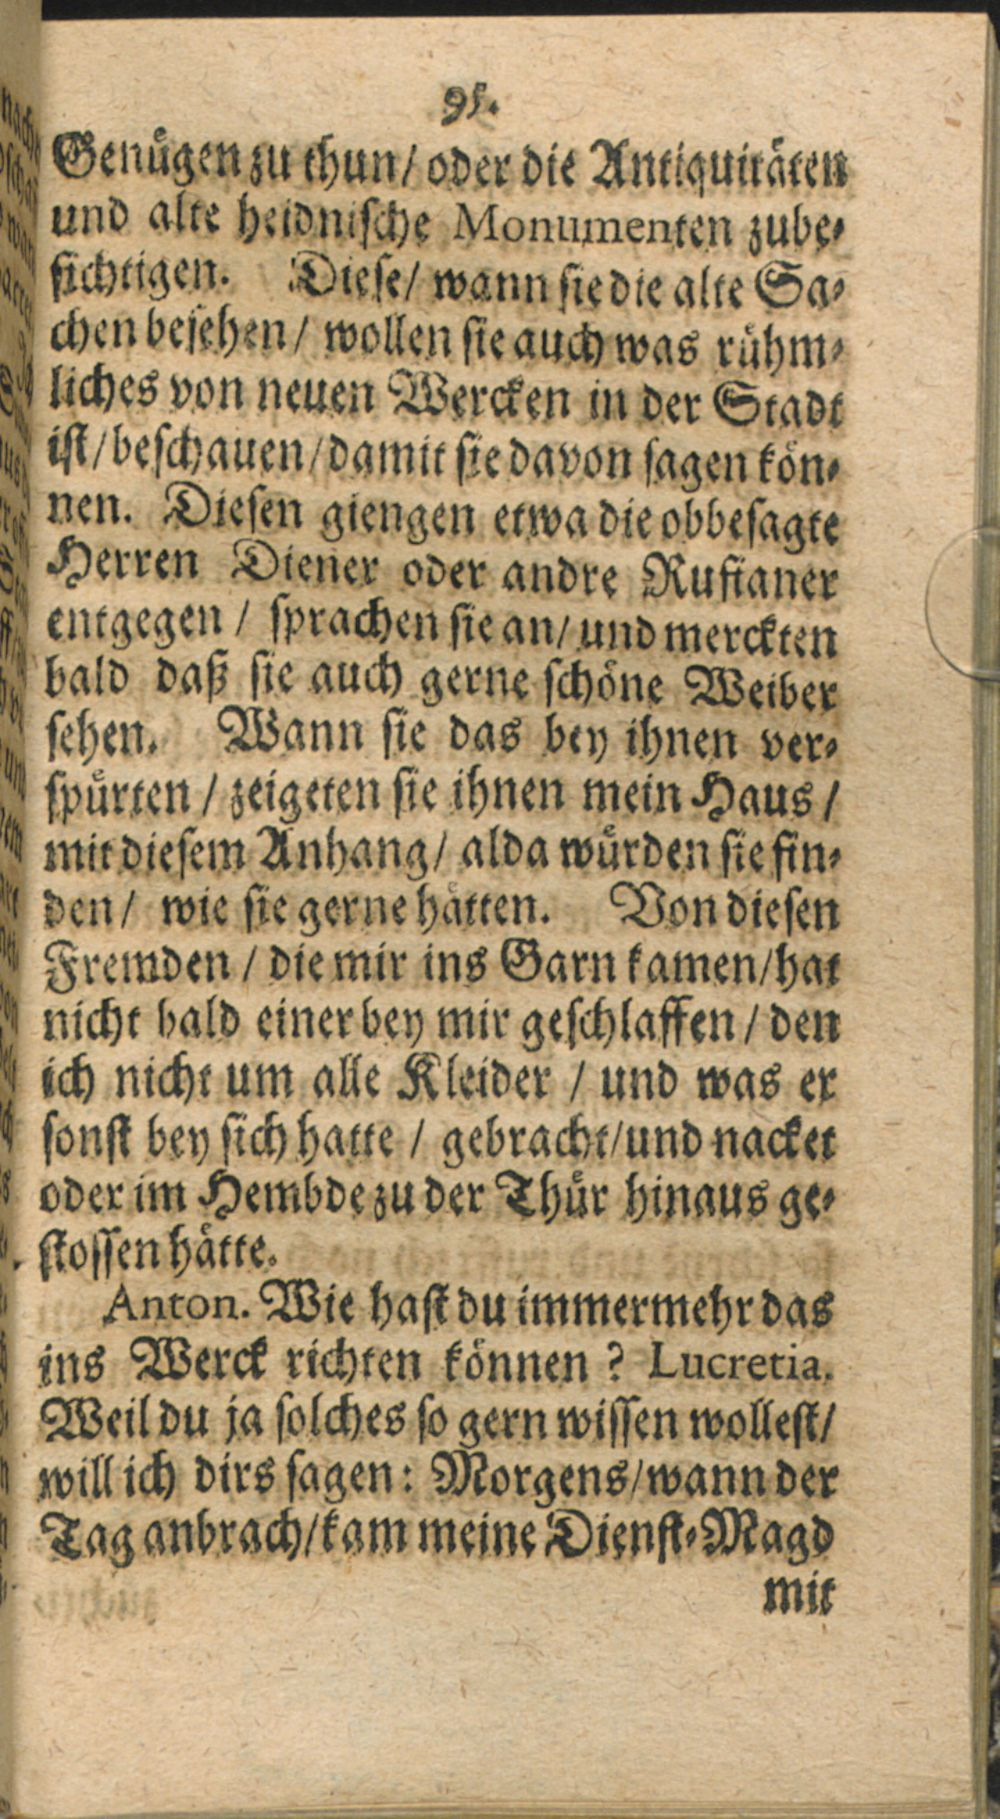 95.
Genügen zu thun/ oder die Antiquitäten
und alte heidnische Monumenten zube-
sichtigen. Diese/ wann sie die alte Sa-
chen besehen/ wollen sie auch was rühm-
liches von neuen Wercken in der Stadt
ist/ beschauen/ damit sie davon sagen kön-
nen. Diesen giengen etwa die obbesagte
Herren Diener oder andre Rufianer
entgegen / sprachen sie an/ und merckten
bald daß sie auch gerne schöne Weiber
sehen. Wann sie das bey ihnen ver-
spürten / zeigeten sie ihnen mein Haus /
mit diesem Anhang/ alda würden sie fin-
den/ wie sie gerne hätten. Von diesen
Fremden / die mir ins Garn kamen/ hat
nicht bald einer bey mir geschlaffen / den
ich nicht um alle Kleider / und was er
sonst bey sich hatte / gebracht/ und nacket
oder im Hembde zu der Thür hinaus ge-
stossen hätte.
Anton. Wie hast du immermehr das
ins Werck richten können ? Lucretia.
Weil du ja solches so gern wissen wollest/
will ich dirs sagen: Morgens/ wann der
Tag anbrach/ kam meine Dienst-Magd
mit